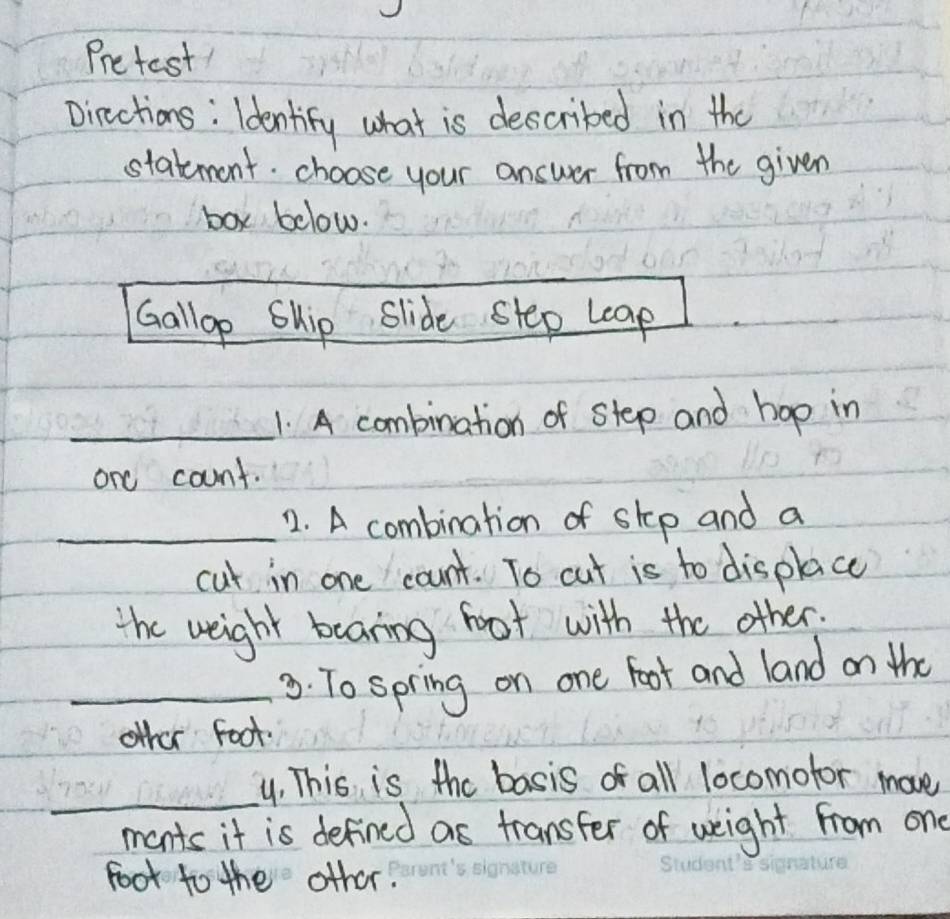 Pretest
Directions: Identify what is described in the
statement. choose your answer from the given
box below.
Gallop Skip Slide Step Leap
1. A combination of step and hop in
one count.
2. A combination of step and a
cut in one count. To cut is to displace
the weight bearing foot with the other.
3. To spring on one foot and land on the
other foot.
4. This is the basis of all locomotor move
ments it is defined as transfer of weight from one
foot to the other.
Parent's signature Student's signature